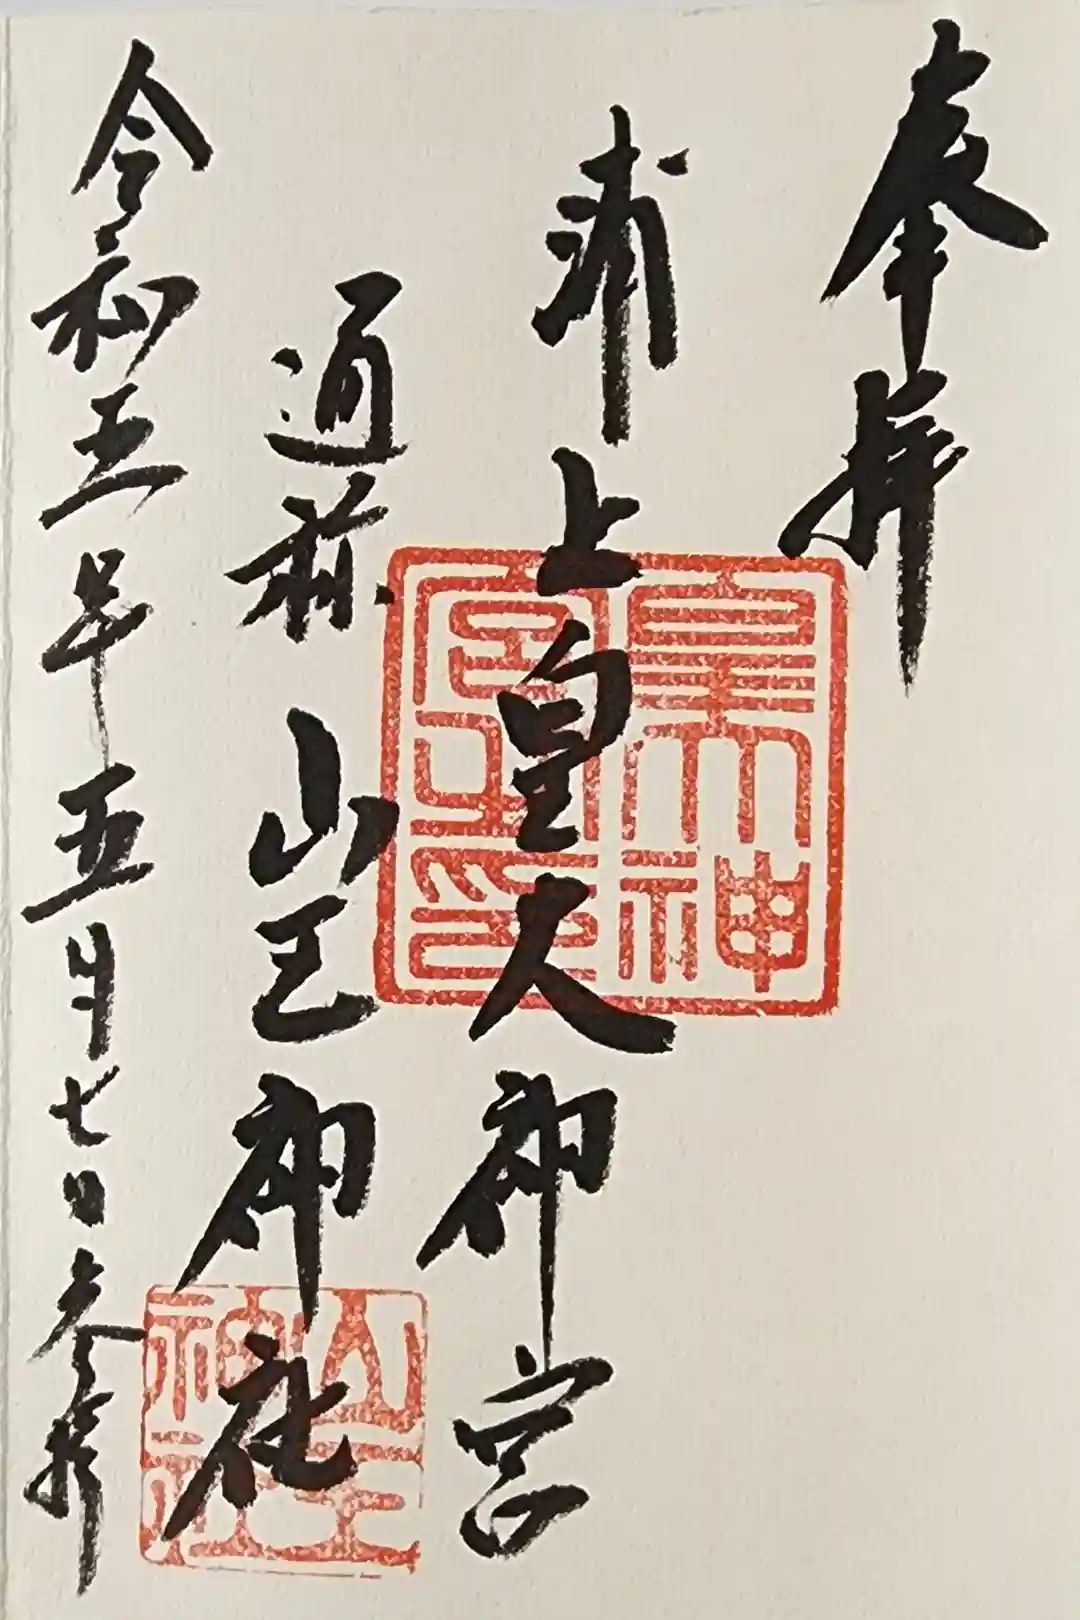 奉拝
浦上皇大神宮
通称 山王神社
令和五年五月七日参拝
皇大神
宮之印
山王
神社